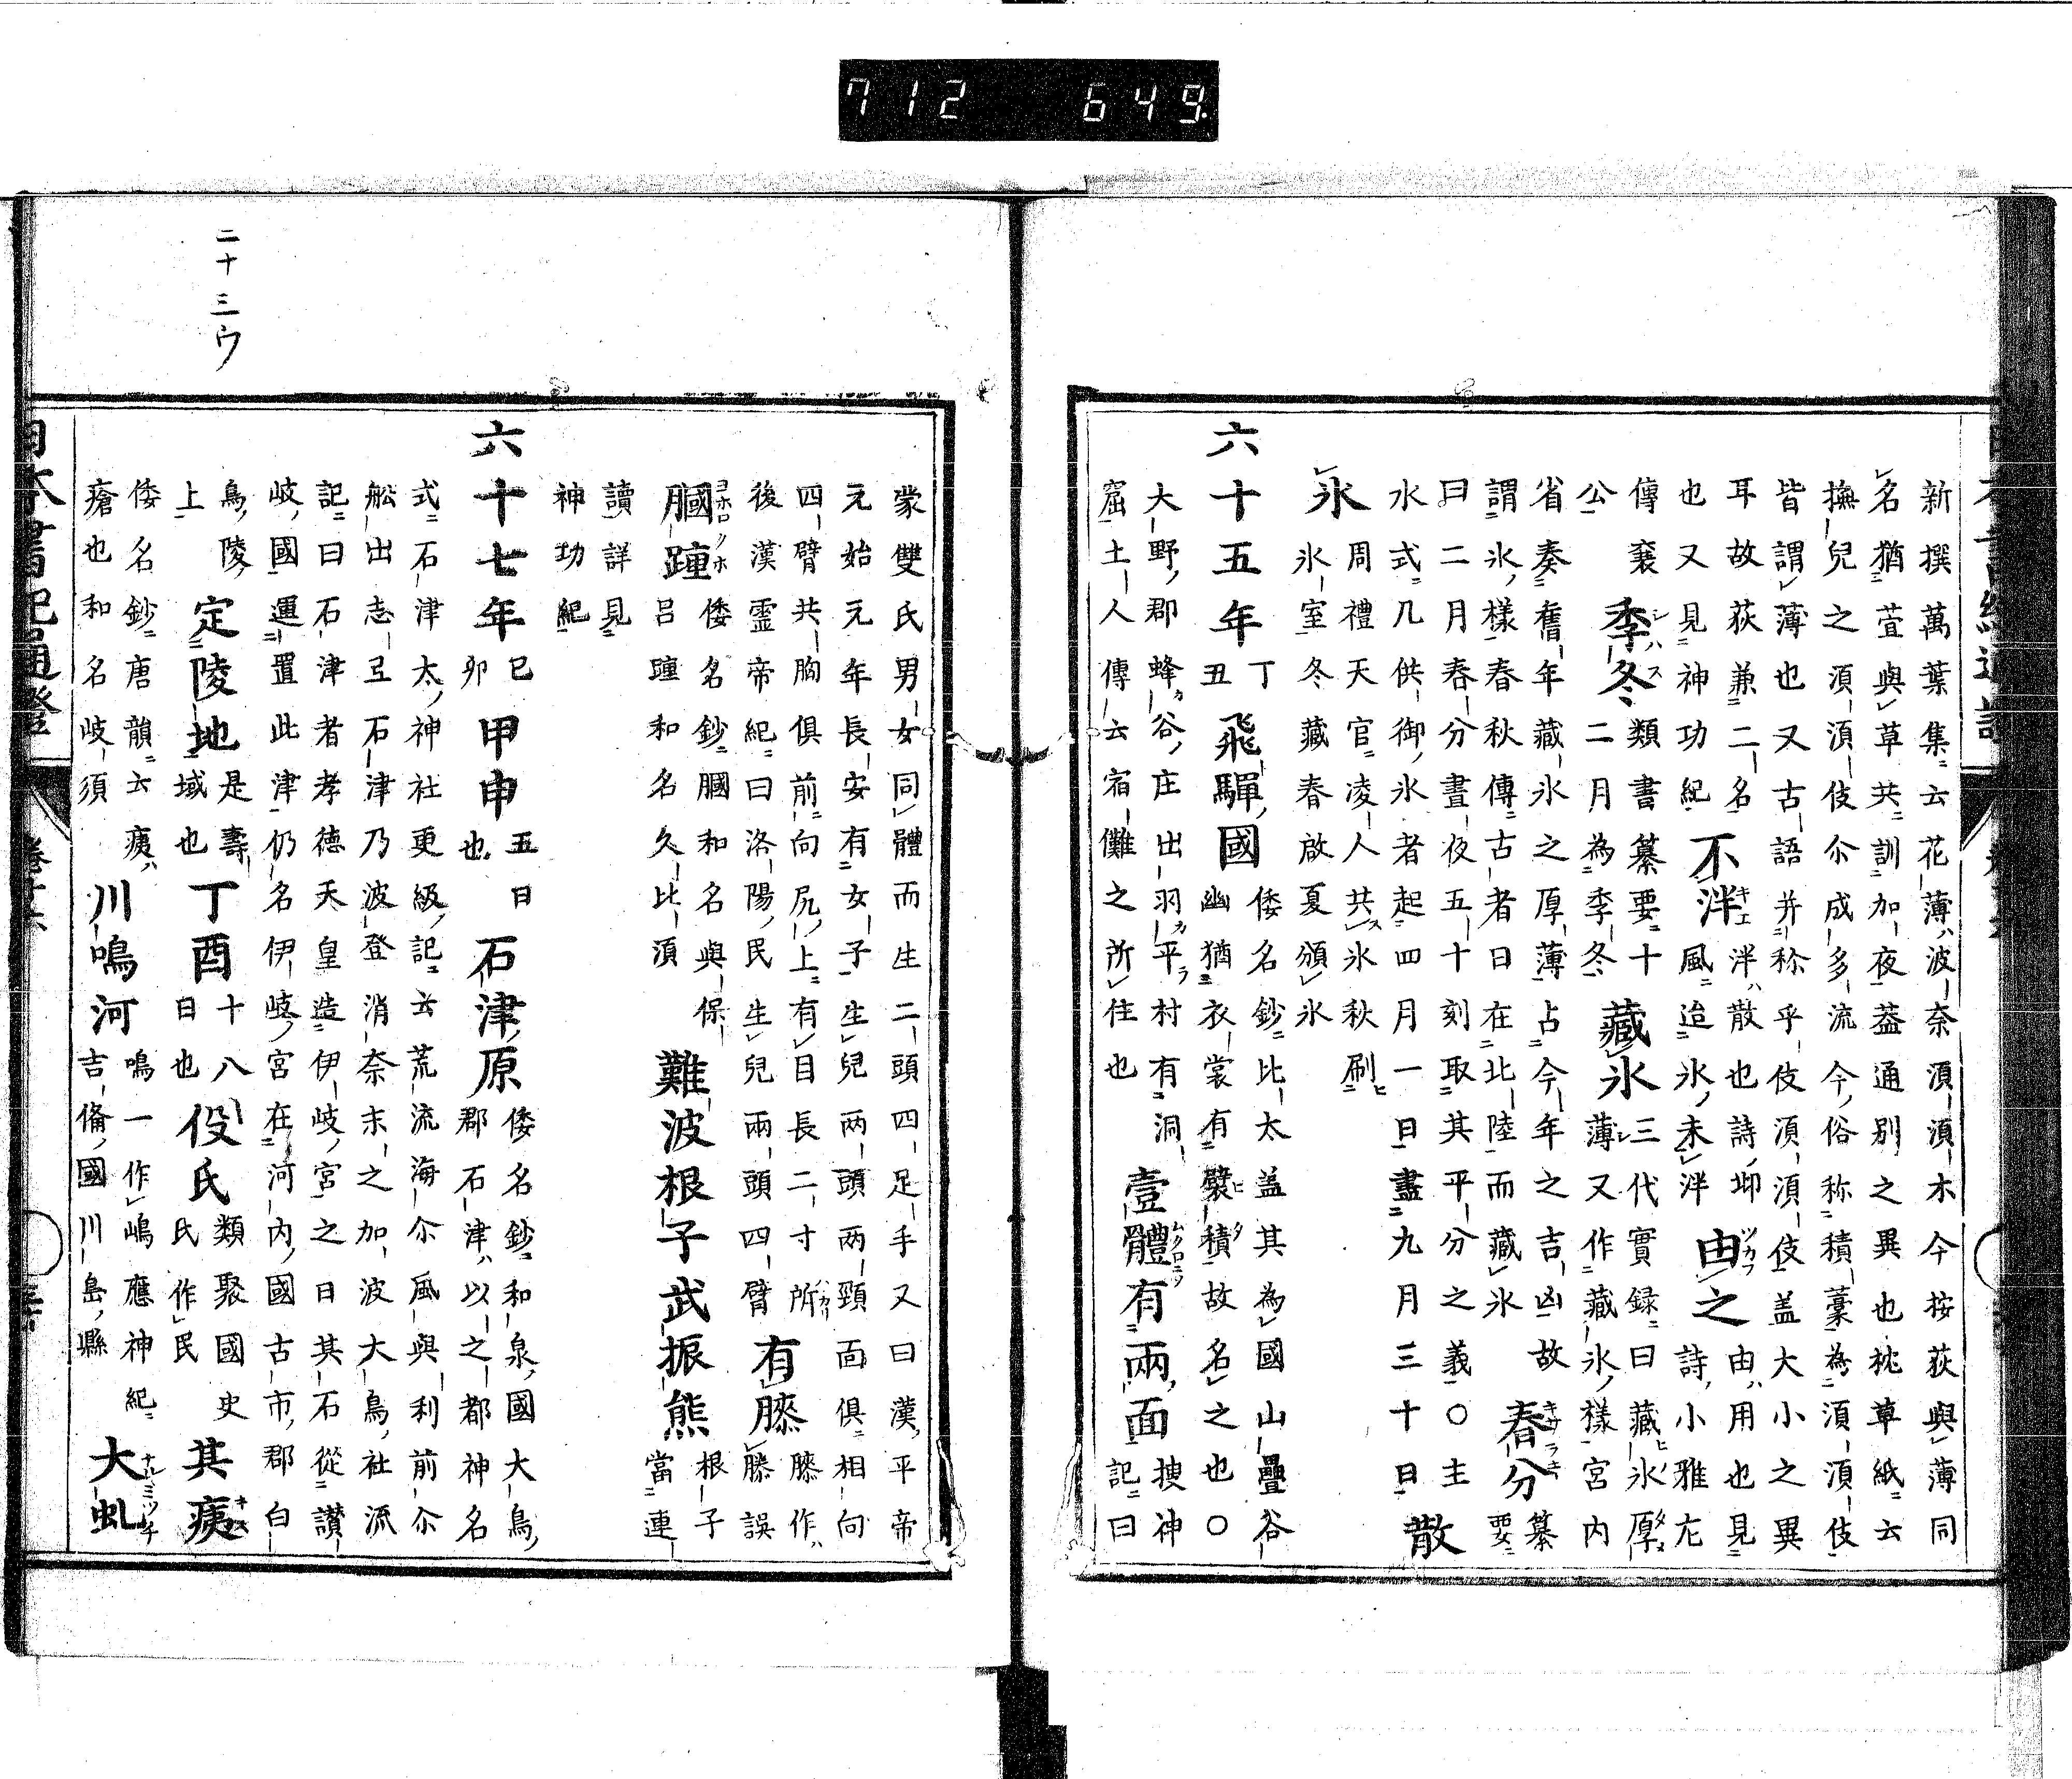 新撰萬葉集云花薄波奈湏湏木今按荻與薄同
名猶萱與草共訓加夜葢通別之異也枕草紙云
撫兒之湏湏伎尒成多流今俗称積藁為湏湏伎
皆謂薄也又古語并称乎伎湏湏伎盖大小之異
耳故荻兼二名
也又見神功紀
不泮キエ
泮ハ散也詩邶
風迨氷未泮
由ツカフ之
由ハ用也見
詩小雅尢
傳襃
公
季シハス冬
類書纂要十
二月為季冬
藏氷
三代實録曰藏氷厚
薄又作藏氷様宮内
省奏舊年藏氷之厚薄占今年之吉凶故
謂氷様春秋傳古者日在北陸而藏氷
春分キサラキ
纂
要
曰二月春分晝夜五十刻取其平分之義〇主
水式几供御氷者起四月一日盡九月三十日
散
氷
周禮天官凌人共氷秋刷
氷室冬藏春啟夏頒氷
六十五年
丁
丑
飛驒國
倭名鈔比太盖其為國山疊谷
幽猶衣裳有襞積故名之也〇
大野郡蜂谷庄出羽平村有洞
窟土人傳云宿儺之所住也
壹體ムクロニツ有兩面
搜神
記曰
蒙雙氏男女同體而生二頭四足手又曰漢平帝
元始元年長安有女子生兒兩頭兩頸面俱相向
四臂共胸俱前向尻上有目長二寸所
後漢靈帝紀曰洛陽民生兒兩頭四臂
有膝
膝作
滕誤
膕踵
倭名鈔膕和名與保
呂踵和名久比湏
難波根子武振熊
根子
當連
讀詳見
神功紀
六十七年
己
卯
甲申
五日
也
石津原
倭名鈔和泉國大鳥
郡石津以之都神名
式石津太神社更級記云荒流海尒風與利前尒
舩出志弖石津乃波登消奈末之加波大鳥社流
記曰石津者孝德天皇造伊岐宮之日其石從讃
岐國運置此津仍名伊岐宮在河内國古市郡白
鳥陵
上
定陵地
是壽
域也
丁酉
十八
日也
役氏
類聚國史
氏作民
其痍キス
倭名鈔唐韻云痍ハ
瘡也和名岐須
川鳴河
鳴一作嶋應神紀
吉備國川島縣
大虬
日本書紀通證
二十三ウ
712 649